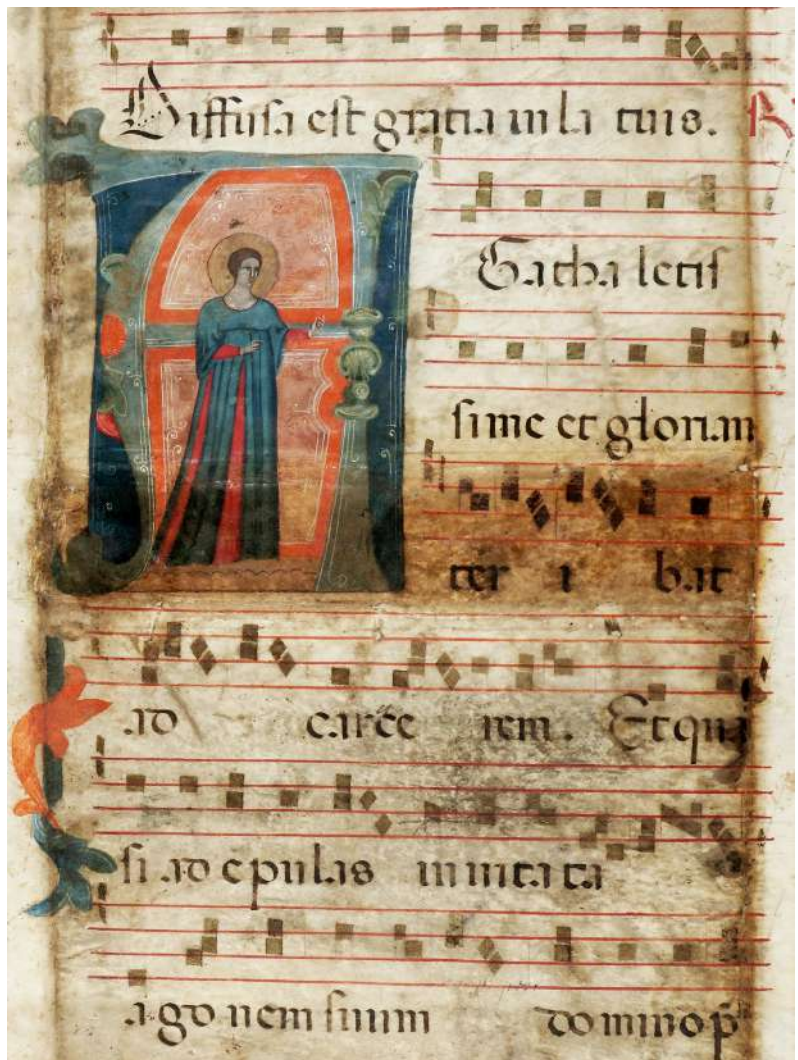 Diffusa est gratia in la tuis. R
AGatha letis
sime et glorian
ter i bat
ad carce rem. Et qua
si ad epulas inuita ta
agonem suum domino p̄